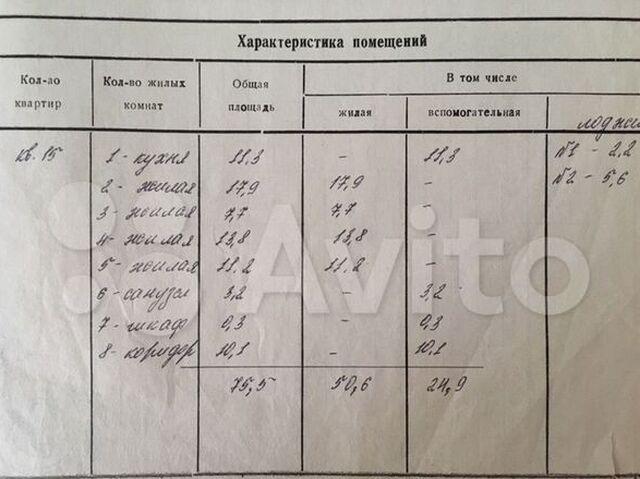 Характеристика помещений
Кол-во квартир | Кол-во жилых комнат | Общая площадь | В том числе
жилая | вспомогательная | лоджии
кв. 15 | 1 - кухня | 11,3 | - | 11,3 | №1 - 2,2
2 - жилая | 17,9 | 17,9 | - | №2 - 5,6
3 - жилая | 7,7 | 7,7 | -
4 - жилая | 13,8 | 13,8 | -
5 - жилая | 11,2 | 11,2 | -
6 - санузел | 3,2 | - | 3,2
7 - шкаф | 0,3 | - | 0,3
8 - коридор | 10,1 | - | 10,1
75,5 | 50,6 | 24,9
Avito